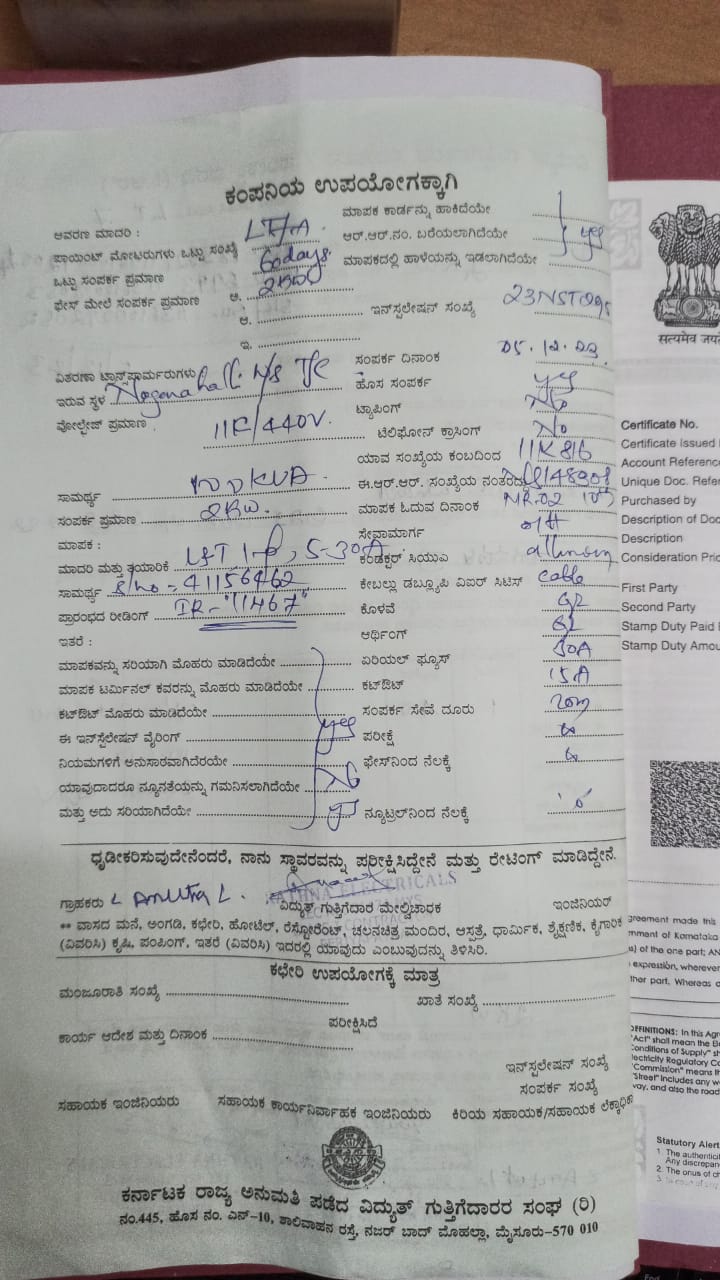 ಕಂಪನಿಯ ಉಪಯೋಗಕ್ಕಾಗಿ
ಆವರಣ ಮಾದರಿ : LT/A
ಮಾಪಕ ಕಾರ್ಡನ್ನು ಹಾಕಿದೆಯೇ
ಪಾಯಿಂಟ್ ಮೋಟರುಗಳು ಒಟ್ಟು ಸಂಖ್ಯೆ 60days
ಆರ್.ಆರ್.ನಂ. ಬರೆಯಲಾಗಿದೆಯೇ yes
ಒಟ್ಟು ಸಂಪರ್ಕ ಪ್ರಮಾಣ 2KW
ಮಾಪಕದಲ್ಲಿ ಹಾಳೆಯನ್ನು ಇಡಲಾಗಿದೆಯೇ
ಫೇಸ್ ಮೇಲೆ ಸಂಪರ್ಕ ಪ್ರಮಾಣ ಅ.
ಆ.
ಇ.
ಇನ್‌ಸ್ಟಲೇಷನ್ ಸಂಖ್ಯೆ
ವಿತರಣಾ ಟ್ರಾನ್ಸ್‌ಫಾರ್ಮರುಗಳು
ಇರುವ ಸ್ಥಳ
ಸಂಪರ್ಕ ದಿನಾಂಕ 05.12.23
ಹೊಸ ಸಂಪರ್ಕ yes
ವೋಲ್ಟೇಜ್ ಪ್ರಮಾಣ 11K/440V.
ಟ್ಯಾಪಿಂಗ್ No
ಟೆಲಿಫೋನ್ ಕ್ರಾಸಿಂಗ್ No
ಯಾವ ಸಂಖ್ಯೆಯ ಕಂಬದಿಂದ 11K816
ಸಾಮರ್ಥ್ಯ 100KVA
ಈ.ಆರ್.ಆರ್. ಸಂಖ್ಯೆಯ ನಂತರದ
ಸಂಪರ್ಕ ಪ್ರಮಾಣ 2KW.
ಮಾಪಕ ಓದುವ ದಿನಾಂಕ
ಮಾಪಕ :
ಸೇವಾಮಾರ್ಗ o/H
ಮಾದರಿ ಮತ್ತು ತಯಾರಿಕೆ L&T 1-φ, 5-30A
ಕಂಡಕ್ಟರ್ ಸಿಯುಎ
ಸಾಮರ್ಥ್ಯ S/no - 41156462
ಕೇಬಲ್ಲು ಡಬ್ಲ್ಯೂಪಿ ವಿಐರ್ ಸಿಟಿಸ್ cable
ಪ್ರಾರಂಭದ ರೀಡಿಂಗ್ IR - "11467"
ಕೊಳವೆ GI
ಇತರೆ :
ಆರ್ಥಿಂಗ್ GI
ಮಾಪಕವನ್ನು ಸರಿಯಾಗಿ ಮೊಹರು ಮಾಡಿದೆಯೇ
ಏರಿಯಲ್ ಫ್ಯೂಸ್ 30A
ಮಾಪಕ ಟರ್ಮಿನಲ್ ಕವರನ್ನು ಮೊಹರು ಮಾಡಿದೆಯೇ
ಕಟ್‌ಔಟ್ 15A
ಕಟ್‌ಔಟ್ ಮೊಹರು ಮಾಡಿದೆಯೇ
ಸಂಪರ್ಕ ಸೇವೆ ದೂರು 20m
ಈ ಇನ್‌ಸ್ಟಲೇಷನ್ ವೈರಿಂಗ್ yes
ಪರೀಕ್ಷೆ
ನಿಯಮಗಳಿಗೆ ಅನುಸಾರವಾಗಿದೆರಯೇ
ಫೇಸ್‌ನಿಂದ ನೆಲಕ್ಕೆ
ಯಾವುದಾದರೂ ನ್ಯೂನತೆಯನ್ನು ಗಮನಿಸಲಾಗಿದೆಯೇ No
ಮತ್ತು ಅದು ಸರಿಯಾಗಿದೆಯೇ
ನ್ಯೂಟ್ರಲ್‌ನಿಂದ ನೆಲಕ್ಕೆ
ಧೃಡೀಕರಿಸುವುದೇನೆಂದರೆ, ನಾನು ಸ್ಥಾವರವನ್ನು ಪರೀಕ್ಷಿಸಿದ್ದೇನೆ ಮತ್ತು ರೇಟಿಂಗ್ ಮಾಡಿದ್ದೇನೆ.
ಗ್ರಾಹಕರು
ವಿದ್ಯುತ್ ಗುತ್ತಿಗೆದಾರ ಮೇಲ್ವಿಚಾರಕ
ಇಂಜಿನಿಯರ್
** ವಾಸದ ಮನೆ, ಅಂಗಡಿ, ಕಛೇರಿ, ಹೋಟೆಲ್, ರೆಸ್ಟೋರೆಂಟ್, ಚಲನಚಿತ್ರ ಮಂದಿರ, ಆಸ್ಪತ್ರೆ, ಧಾರ್ಮಿಕ, ಶೈಕ್ಷಣಿಕ, ಕೈಗಾರಿಕೆ
(ವಿವರಿಸಿ) ಕೃಷಿ, ಪಂಪಿಂಗ್, ಇತರೆ (ವಿವರಿಸಿ) ಇದರಲ್ಲಿ ಯಾವುದು ಎಂಬುವುದನ್ನು ತಿಳಿಸಿರಿ.
ಕಛೇರಿ ಉಪಯೋಗಕ್ಕೆ ಮಾತ್ರ
ಮಂಜೂರಾತಿ ಸಂಖ್ಯೆ
ಖಾತೆ ಸಂಖ್ಯೆ
ಪರೀಕ್ಷಿಸಿದೆ
ಕಾರ್ಯ ಆದೇಶ ಮತ್ತು ದಿನಾಂಕ
ಇನ್‌ಸ್ಟಲೇಷನ್ ಸಂಖ್ಯೆ
ಸಂಪರ್ಕ ಸಂಖ್ಯೆ
ಸಹಾಯಕ ಇಂಜಿನಿಯರು
ಸಹಾಯಕ ಕಾರ್ಯನಿರ್ವಾಹಕ ಇಂಜಿನಿಯರು
ಕಿರಿಯ ಸಹಾಯಕ/ಸಹಾಯಕ ಲೆಕ್ಕಾಧಿಕಾ
ಕರ್ನಾಟಕ ರಾಜ್ಯ ಅನುಮತಿ ಪಡೆದ ವಿದ್ಯುತ್ ಗುತ್ತಿಗೆದಾರರ ಸಂಘ (ರಿ)
ನಂ.445, ಹೊಸ ನಂ. ಎನ್-10, ಶಾಲಿವಾಹನ ರಸ್ತೆ, ನಜರ್ ಬಾದ್ ಮೊಹಲ್ಲಾ, ಮೈಸೂರು-570 010
सत्यमेव जयते
Certificate No.
Certificate Issued
Account Reference
Unique Doc. Refer
Purchased by
Description of Doc
Description
Consideration Pric
First Party
Second Party
Stamp Duty Paid
Stamp Duty Amou
greement made this
nment of Karnataka
s) of the one part; AN
expression, wherever
ther part. Whereas
DEFINITIONS: In this Agr
"Act" shall mean the
conditions of Supply" sh
lectricity Regulatory Co
"Commission" means
"Street" includes any w
vay, and also the road
Statutory Alert
1 The authentici
Any discrepan
2. The onus of ch